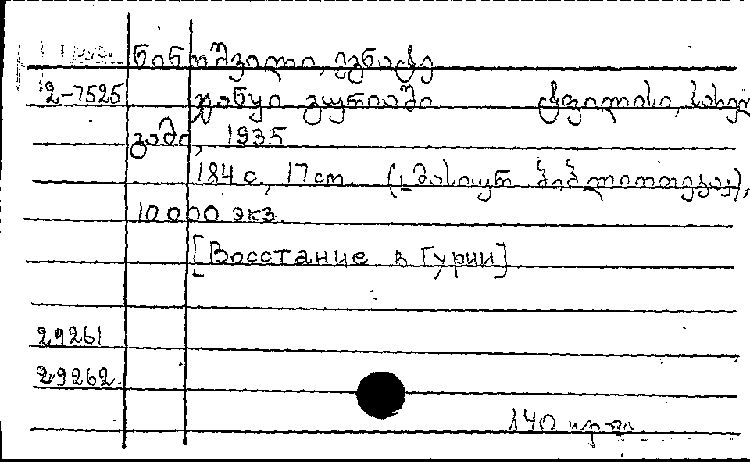 ნინოშვილი, ეგნატე
2-7525 ჯანყი გურიაში ტფილისი, სახელ
გამი, 1935
184 с., 17 cm. („მასიურ ბიბლიოთეკა),
10000 экз.
[Восстание в Гурии]
29261
29262
140